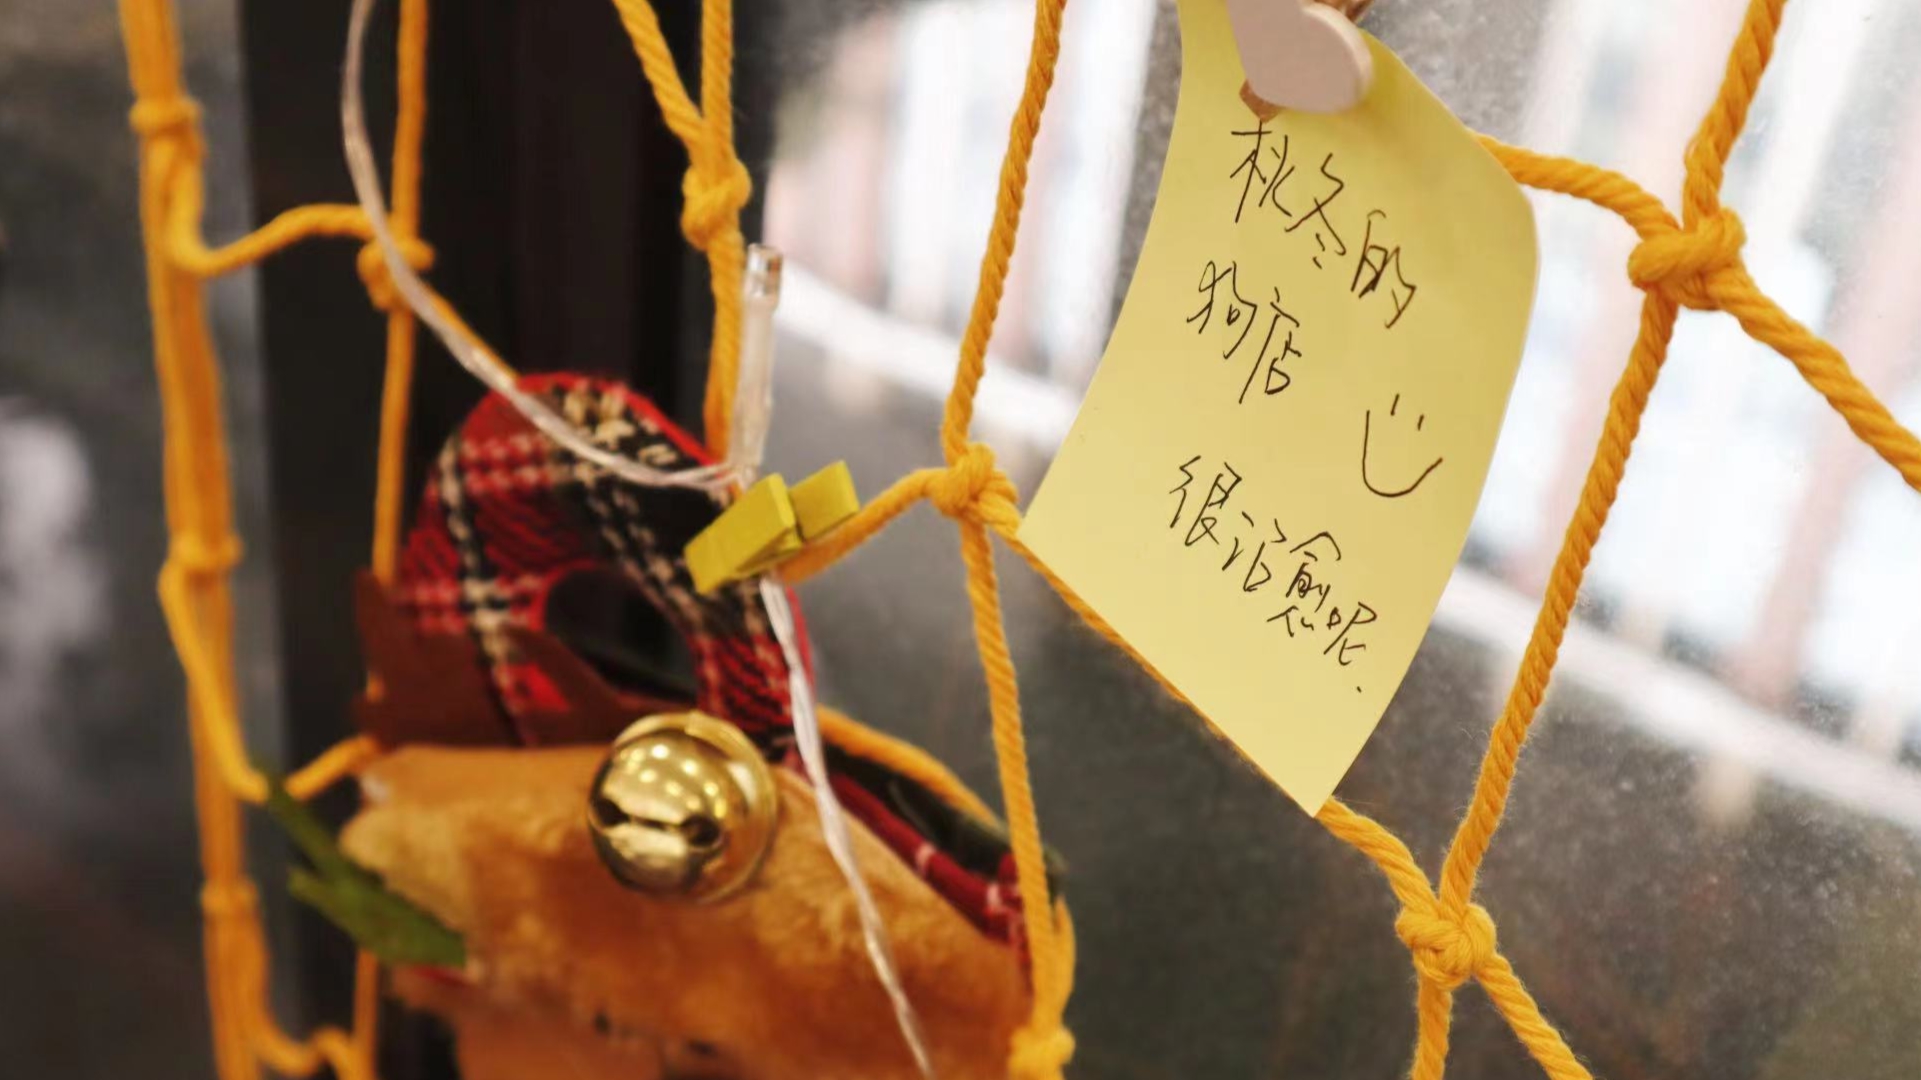 秋冬的
狗店
很治愈呢.